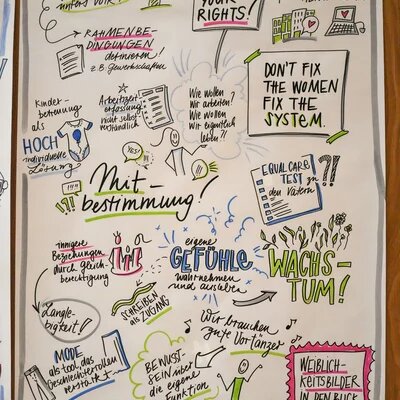 YOUR
RIGHTS!
RAHMENBE-
DINGUNGEN
definieren!
z.B. Gewerkschaften
Kinder-
betreuung
als
HOCH
individuelle
Lösung
Arbeitszeit-
erfassung
nicht selbst-
verständlich
Wie wollen
wir arbeiten?
Wie wollen
wir eigentlich
leben?!
DON'T FIX
THE WOMEN
FIX THE
SYSTEM.
Yes!
!?!
Mit-
bestimmung!
EQUAL CARE
TEST zu
den Vätern
?!
innigere
Beziehungen
durch Gleich-
berechtigung
eigene
GEFÜHLE
wahrnehmen
und ausleben
WACHS-
TUM!
Langle-
bigkeit!
SCHREIBEN
ALS ZUGANG
Wir brauchen
gute Vortänzer
MODE
als tool, das
Geschlechterrollen
verstärkt
BEWUSST-
SEIN über
die eigene
Funktion
WEIBLICH-
KEITSBILDER
IN DEN BLICK